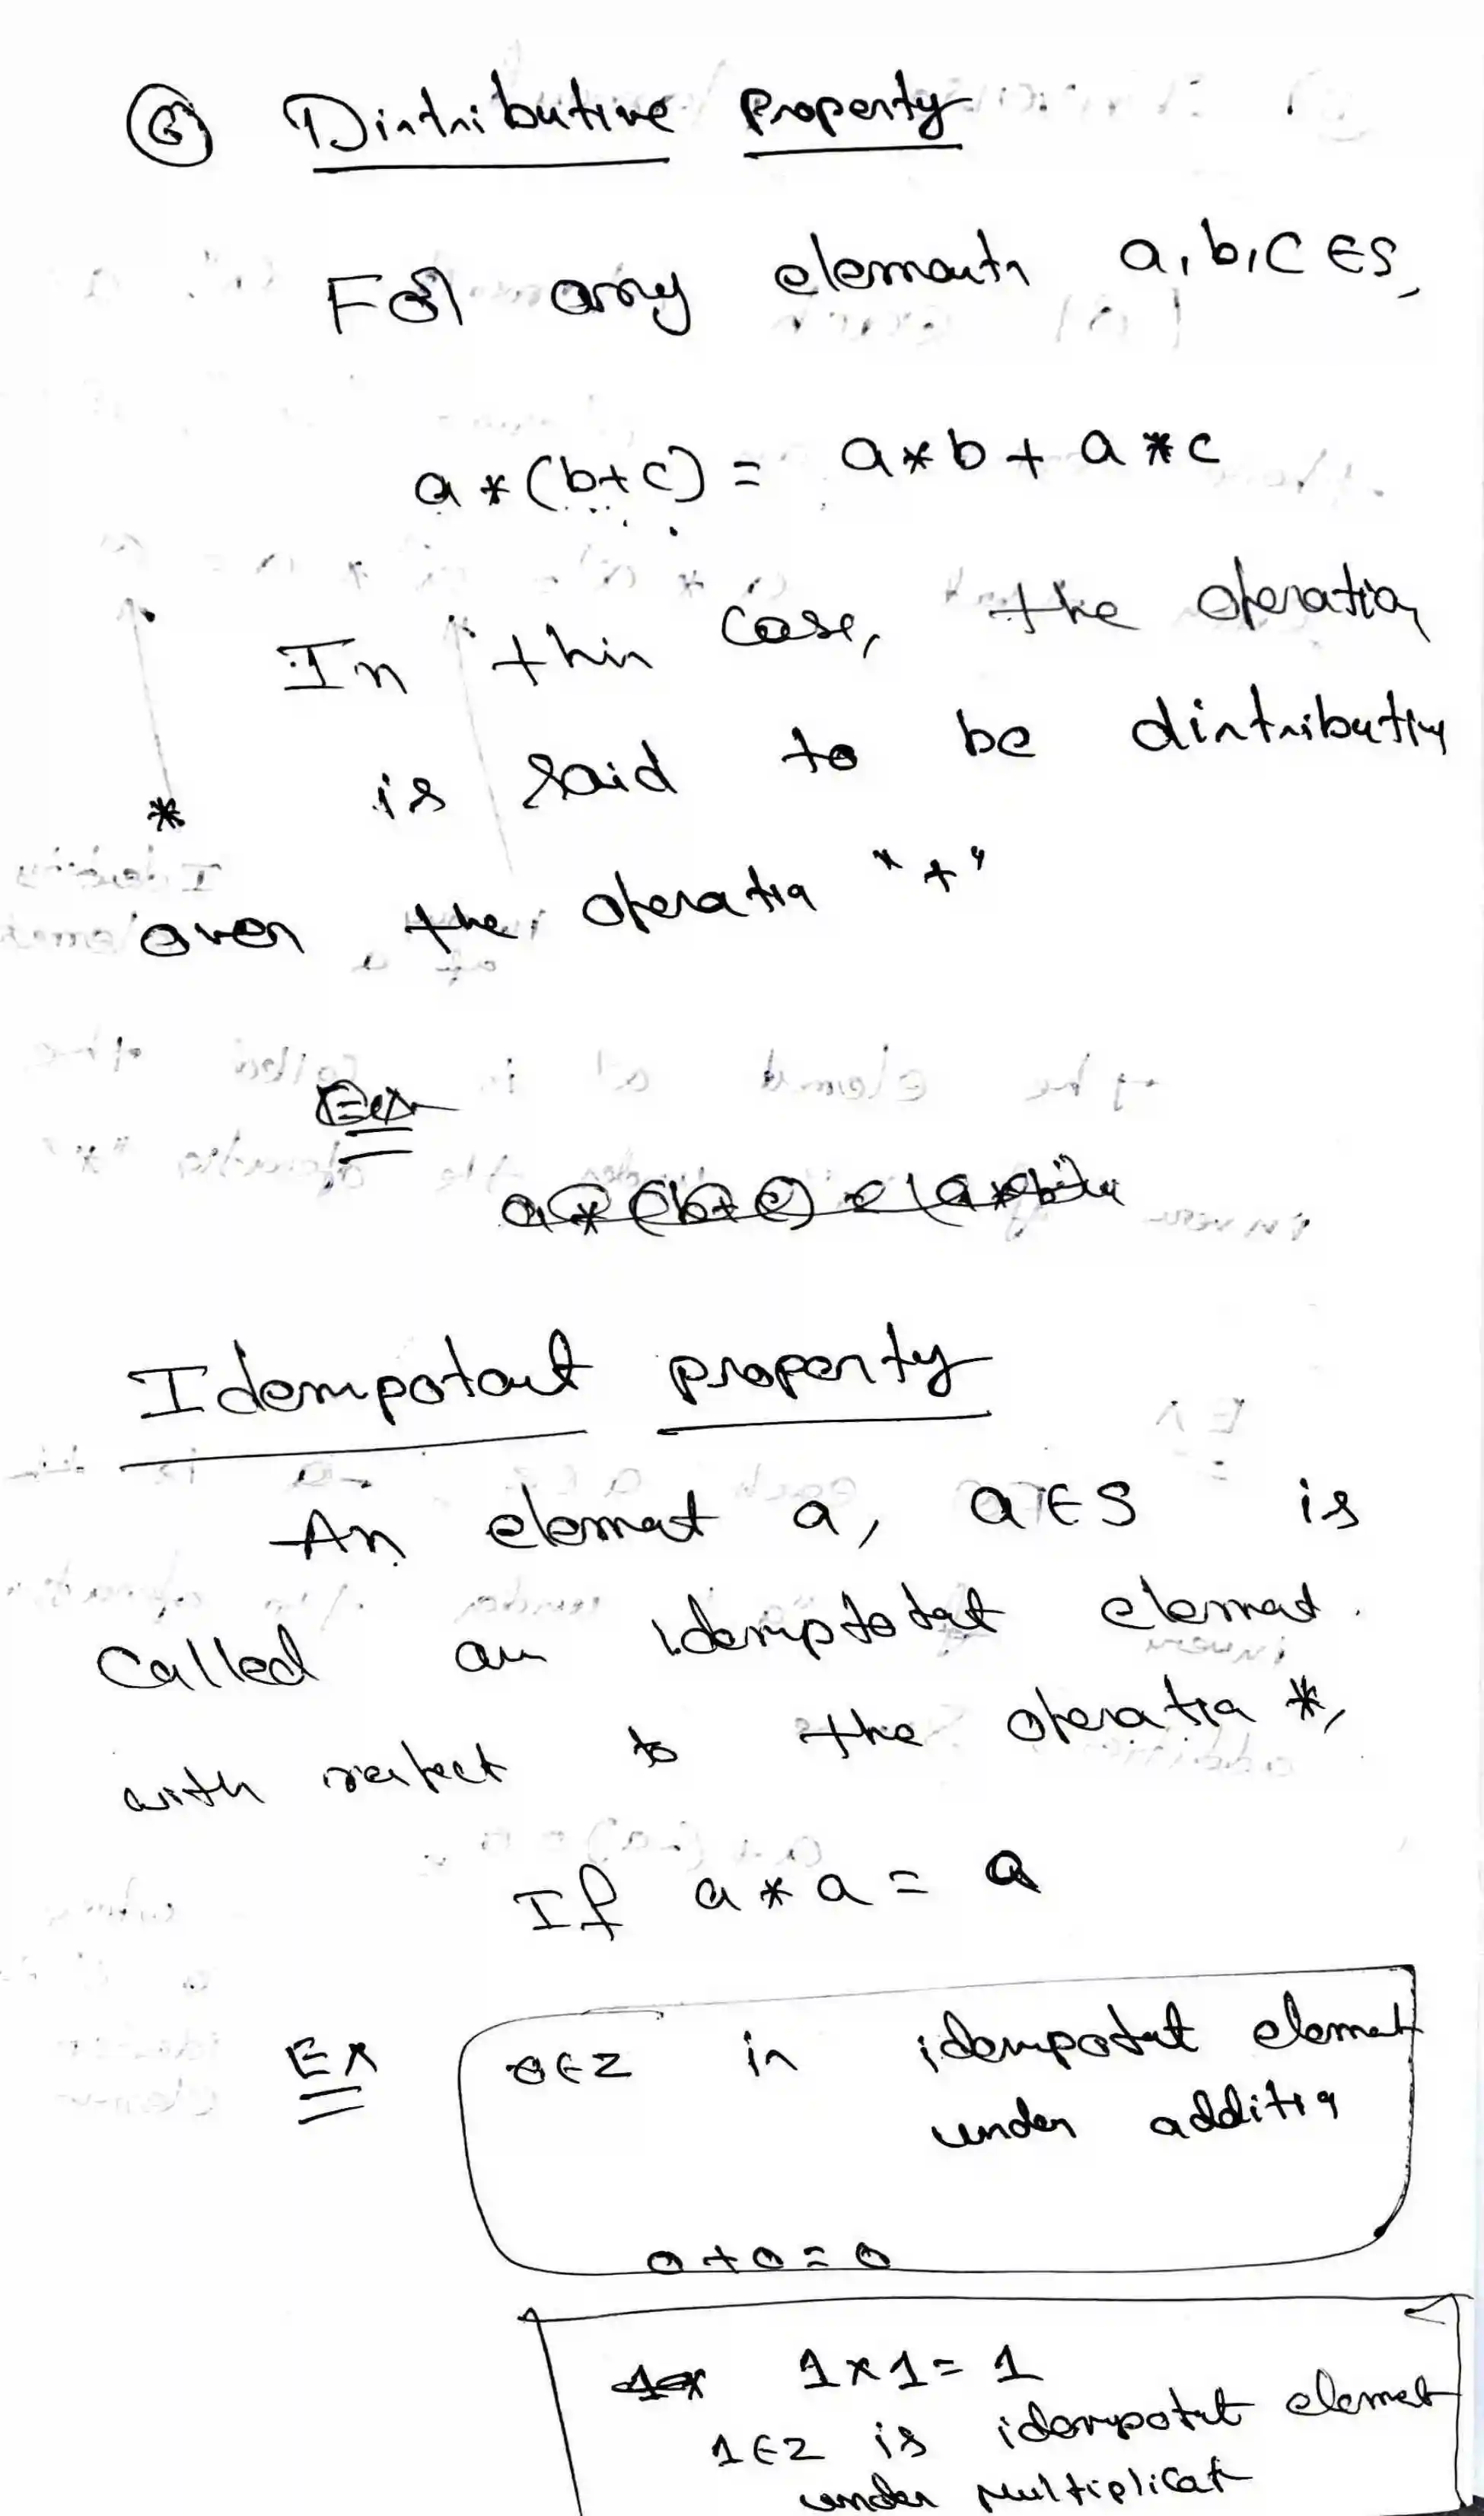 ⑥ Distributive Property
For any elements a, b, c ∈ S,
a * (b+c) = a*b + a*c
In this case, the operation
* is said to be distributive
over the operation "+"
Ex
Idempotent property
An element a, a ∈ S is
called an idemptotent element
with respect to the operation *,
If a * a = a
Ex 0 ∈ Z is idempotent element
under addition
0 + 0 = 0
1x 1 x 1 = 1
1 ∈ Z is idempotent element
under Multiplicat